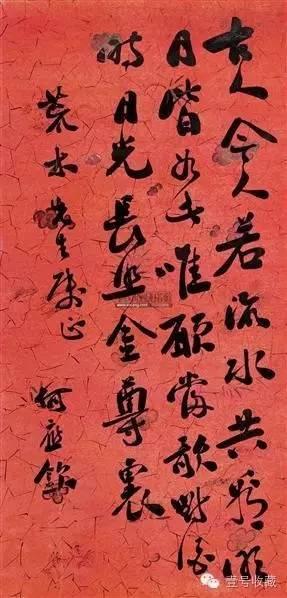 古人今人若流水共看明
月皆如此唯願當歌對酒
時月光長照金尊裏
荒木先生雅正
何應欽
壹号收藏